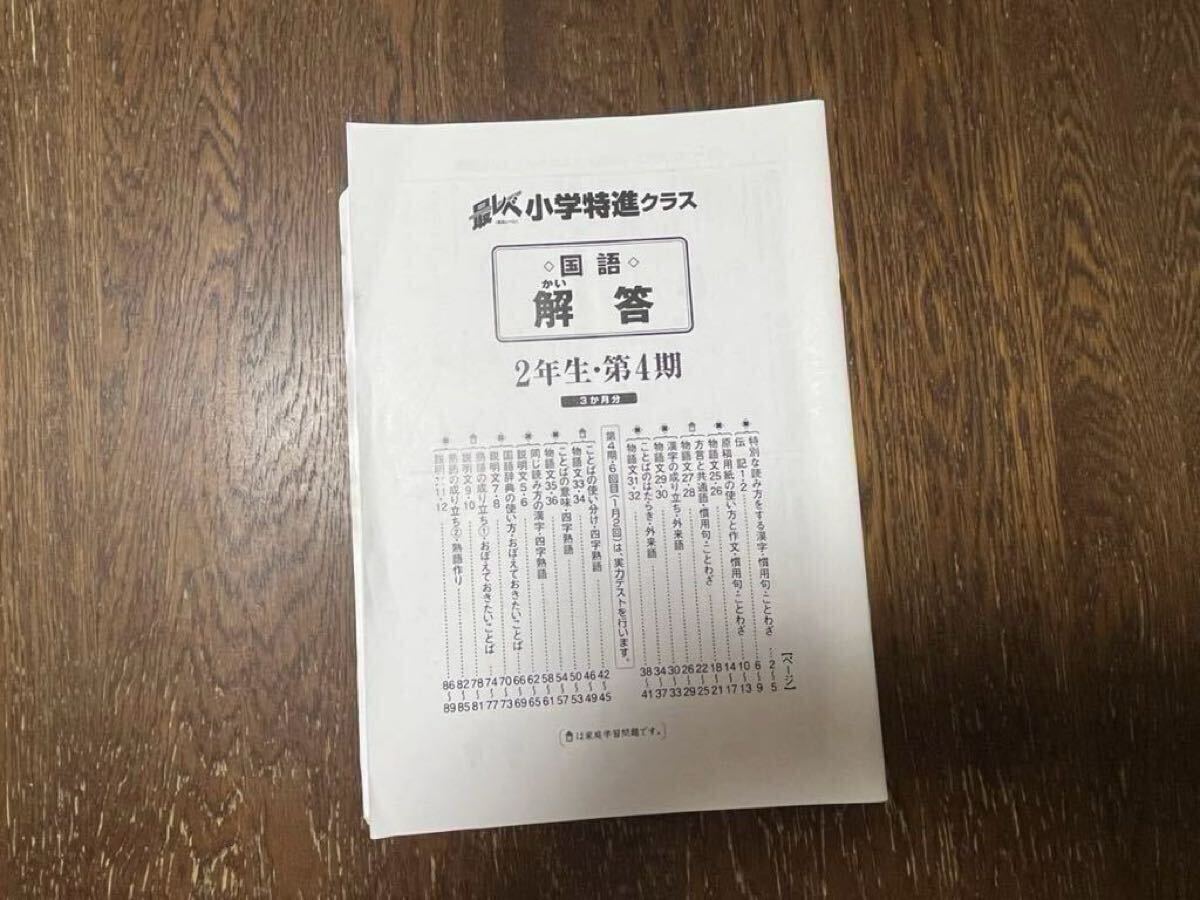 最レベ 小学特進クラス
◇国語◇
かい
解答
2年生・第4期
3か月分
【ページ】
特別な読み方をする漢字・慣用句・ことわざ 2～5
伝記1・2 6～9
原稿用紙の使い方と作文・慣用句・ことわざ 10～13
物語文25・26 14～17
方言と共通語・慣用句・ことわざ 18～21
物語文27・28 22～25
漢字の成り立ち・外来語 26～29
物語文29・30 30～33
ことばのはたらき・外来語 34～37
物語文31・32 38～41
第4期・6回目(1月2回)は、実力テストを行います。
ことばの使い分け・四字熟語 42～45
物語文33・34 46～49
ことばの意味・四字熟語 50～53
物語文35・36 54～57
同じ読み方の漢字・四字熟語 58～61
説明文5・6 62～65
国語辞典の使い方・おぼえておきたいことば 66～69
説明文7・8 70～73
熟語の成り立ち①・おぼえておきたいことば 74～77
説明文9・10 78～81
熟語の成り立ち②・熟語作り 82～85
説明文11・12 86～89
は家庭学習問題です。